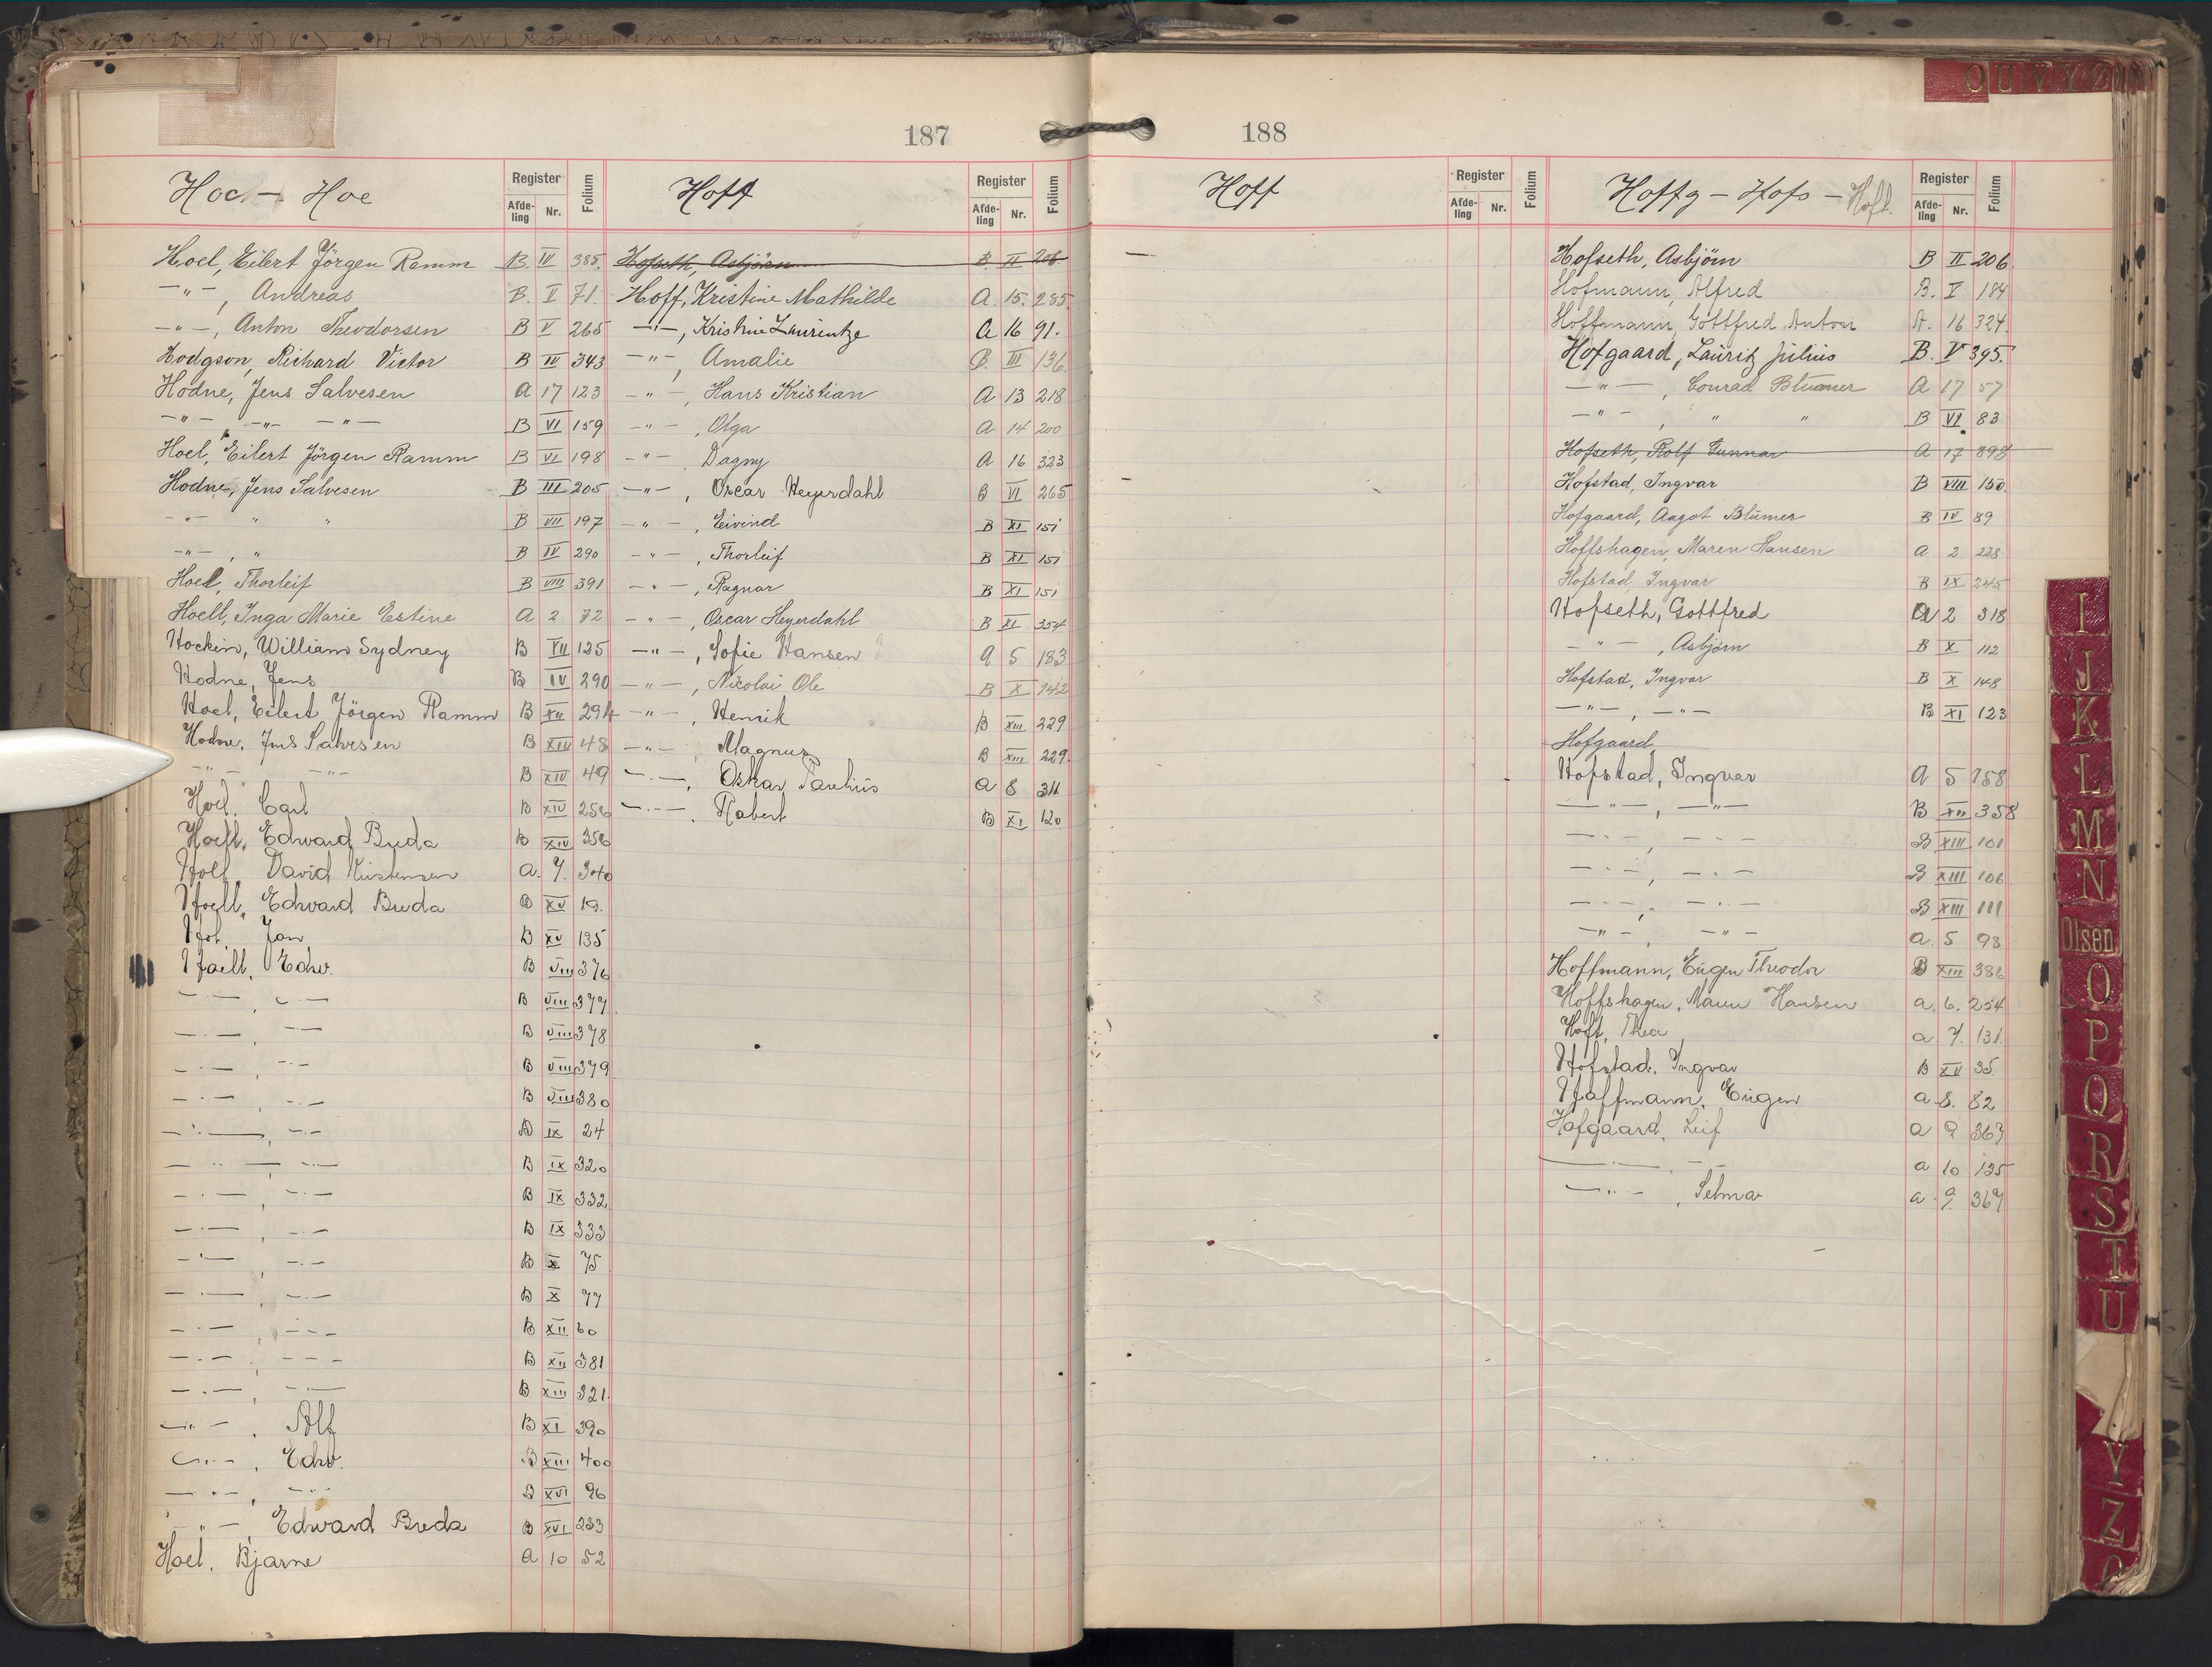 187
Hoc - Hoe
Register Folium
Afde-ling Nr.
Hoel, Eilert Jörgen Ramm B. IV 385.
-"-, Andreas B. V 71.
-"-, Anton Theodorsen B V 265
Hodgson, Richard Victor B IV 343
Hodne, Jens Salvesen A 17 123
-"- -"- -"- B VI 159
Hoel, Eilert Jörgen Ramm B VI 198
Hodne, Jens Salvesen B III 205
-"- " " B VII 197
-"-, " B IV 290
Hoel, Thorleif B VIII 391
Hoell, Inga Marie Estine A 2 72
Hockin, William Sydney B VII 125
Hodne, Jens B IV 290
Hoel, Eilert Jörgen Ramm B XII 294
Hodne, Jens Salvesen B XIV 48
-"- -"- B XIV 49
Hoel, Carl B XIV 256
Hoell, Edward Breda B XIV 356
David a. 7. 340
Hoell, Edvard Breda B XV 19.
Jon B XV 135
Hoell, Edw. B VIII 376
-"-, -"- B VIII 377
-"-, -"- B VIII 378
-"-, -"- B VIII 379
-"-, -"- B VIII 380
-"-, -"- B IX 24
-"-, -"- B IX 320
-"-, -"- B IX 332
-"-, -"- B IX 333
-"-, -"- B X 75
-"-, -"- B X 77
-"-, -"- B XII 60
-"-, -"- B XII 381
-"-, -"- B XIII 321.
-"-, Alf B XI 390
-"-, Edw. B XIII 400
-"-, -"- B XVI 96
-"-, Edward Breda B XVI 233
Hoel, Bjarne a 10 52
Hoff
Register Folium
Afde-ling Nr.
Hofseth, Asbjörn B. II 206
Hoff, Kristine Mathilde A. 15. 285.
-"-, Kristine Laurentze A 16 91.
-"-, Amalie B. III 136.
-"-, Hans Kristian A 13 218
-"-, Olga A 14 200
-"- Dagny A 16 323
-"-, Oscar Heyerdahl B VI 265
-"-, Eivind B XI 151
-"-, Thorleif B XI 151
-"-, Ragnar B XI 151
-"-, Oscar Heyerdahl B XI 354
-"-, Sofie Hansen a 5 183
-"-, Nicolai Ole B X 142
-"-, Henrik B XIII 229
-"-, Magnus B XIII 229.
-"-, Oskar a 8 311
-"-, Robert B XI 120
188
Hoff
Register Folium
Afde-ling Nr.
-
Hoffg - Hofs - Hoft.
Register Folium
Afde-ling Nr.
Hofseth, Asbjörn B II 206
Hofmann, Alfred B. V 184
Hoffmann, Gottfred Anton A. 16 324.
Hofgaard, Lauritz Julius B. V 395.
-"-, Conrad Blumer A 17 57
-"-, " " B VI 83
Hofseth, Rolf Gunnar A 17 398
Hofstad, Ingvar B VIII 150.
Hofgaard, Aagot Blümer B IV 89
Hoffshagen, Maren Hansen a 2 228
Hofstad, Ingvar B IX 245
Hofseth, Gottfred A 2 318
-"-, Asbjörn B X 112
Hofstad, Ingvar B X 148
-"-, -"- B XI 123
Hofgaard,
Hofstad, Ingvar a 5 158
-"-, -"- B XII 358
-"-, -"- B XIII 101
-"-, -"- B XIII 106
-"-, -"- B XIII 111
-"- -"- a. 5 98
Hoffmann, Eugen Theodor B XIII 386
Hoffshagen, Maren Hansen a. 6. 254
Hoft, Thea a 7. 131.
Hofstad, Ingvar B XV 35
Hoffmann, Eugen a 8. 82
Hofgaard, Leif a 9 367
-"-, -"- a 10 125
-"-, Selma a 9. 367
O U V Y Z
I
J
K
L
M
N
Olsen
O
P
Q
R
S
T
U
Y
Z